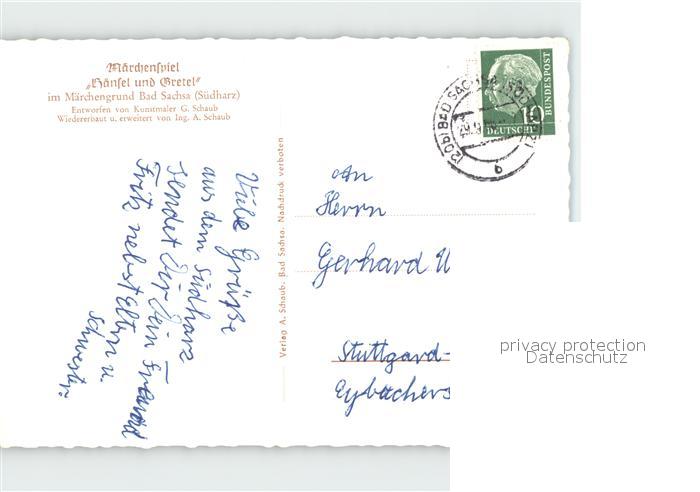 Märchenspiel
„Hänsel und Gretel"
im Märchengrund Bad Sachsa (Südharz)
Entworfen von Kunstmaler G. Schaub
Wiedererbaut u. erweitert von Ing. A. Schaub
Viele Grüße
aus dem Südharz
sendet Dir Dein Freund
Fritz nebst Eltern u.
Schwester
Verlag A. Schaub, Bad Sachsa. Nachdruck verboten
(20b) BAD SACHSA (SÜDHARZ)
b
10
DEUTSCHE
BUNDESPOST
An
Herrn
Gerhard
Stuttgard-
privacy protection
Datenschutz